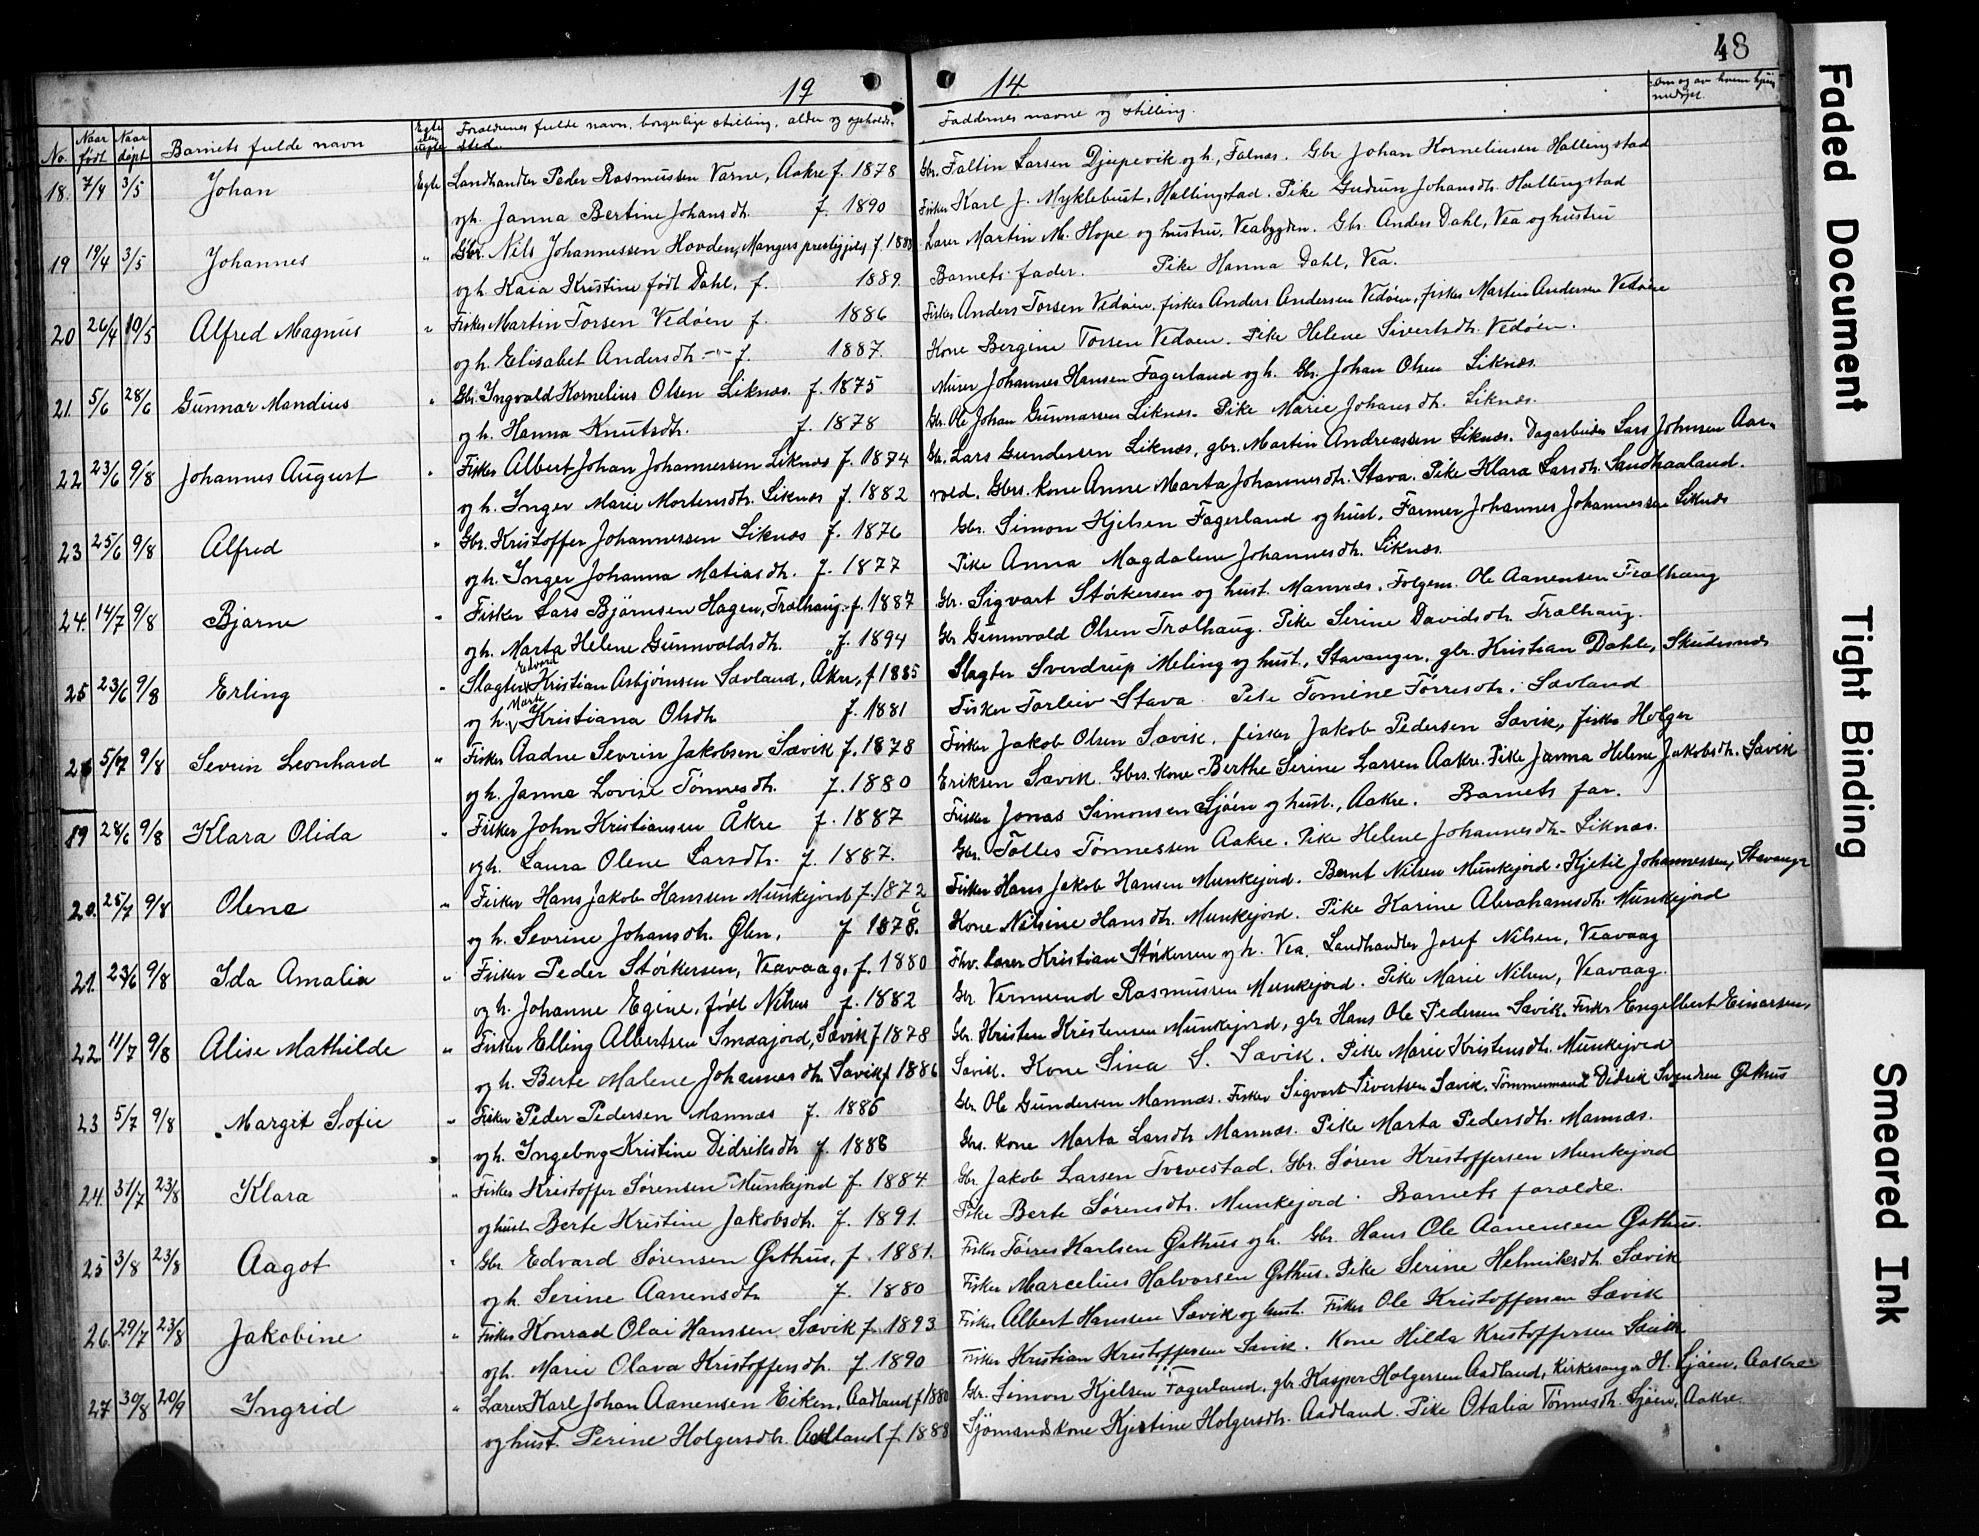 48
19 14.
No. Naar født Naar døpt Barnets fulde navn Egte eller uegte Forældrenes fulde navn, borgerlige stilling, alder og opholdssted. Faddernes navne og stilling.
18. 7/4 3/5 Johan Egte Landhandler Peder Rasmussen Varne, Aakre f. 1878 Gbr. Faltin Larsen Djupevik og h., Falnæs. Gbr Johan Korneliussen Hallingstad
og h. Janna Bertine Johansdtr. f. 1890 Fisker Karl J. Myklebust, Hallingstad. Pike Gudrun Johansdtr. Hallingstad
19 19/4 3/5 Johannes " Gbr. Nils Johannessen Hovden, Mangers prestegjeld, f. 188 Lærer Martin M. Hope og hustru, Veabygden. Gbr. Anders Dahl, Vea og hustru
og h. Kaia Kristine født Dahl, f. 1889. Barnets fader. Pike Hanna Dahl, Vea.
20 26/4 10/5 Alfred Magnus " Fisker Martin Torsen Vedøen f. 1886 Fisker Anders Torsen Vedøen, fisker Anders Andersen Vedøen, fisker Martin Andersen Vedøen
og h. Elisabet Andersdtr. -"- f. 1887. Kone Bergine Torsen Vedøen. Pike Helene Sivertsdtr. Vedøen.
21. 5/6 28/6 Gunnar Mandius " Gbr. Ingvald Kornelius Olsen Liknæs. f. 1875 Murer Johannes Hansen Fagerland og h. Gbr. Johan Olsen Liknæs.
og h. Hanna Knutsdtr. f. 1878 Gbr. Ole Johan Gunnarsen Liknæs. Pike Marie Johansdtr. Liknæs.
22 23/6 9/8 Johannes August " Fisker Albert Johan Johannessen Liknæs f. 1874 Gbr. Lars Gundersen Liknæs, gbr. Martin Andreassen Liknæs. Dagarbeider Lars Johnsen Aar-
og h. Inger Marie Mortensdtr. Liknæs f. 1882 vold. Gbrs. kone Anne Marta Johannesdtr. Stava. Pike Klara Larsdtr. Sandhaaland.
23 25/6 9/8 Alfred " Gbr. Kristoffer Johannessen Liknæs f. 1876 Gbr. Simon Kjelsen Fagerland og hust. Farmer Johannes Johannessen Liknæs
og h. Inger Johanna Matiasdtr. f. 1877 Pike Anna Magdalene Johannesdtr. Liknæs.
24. 14/7 9/8 Bjarne " Fisker Lars Bjørnsen Hagen, Trælhaug. f. 1887 Gbr. Sigvart Størkersen og hust. Mannæs. Folgem. Ole Aanensen Trælhaug
og h. Marta Helene Gunnvaldsdtr. f. 1894 Gbr Gunnvald Olsen Trælhaug. Pike Serine Davidsdtr. Trælhaug.
25 23/6 9/8 Erling " Slagter Edvard Kristian Asbjørnsen Sævland, Åkre, f 1885 Slagter Sverdrup Meling og hust., Stavanger, gbr. Kristian Dahle, Skudesnæs
og h. Marte Kristiana Olsdtr. f. 1881 Fisker Torleiv Stava Pike Tomine Tørresdtr. Sævland
26 5/7 9/8 Sevrin Leonhard " Fisker Aadne Sevrin Jakobsen Sævik f. 1878 Fisker Jakob Olsen Sævik, fisker Jakob Pedersen Sævik, fisker Holger
og h. Janna Lovise Tønnesdtr. f. 1880 Eriksen Sævik. Gbrs. kone Berthe Serine Larsen Aakre. Pike Janna Helene Jakobsdtr. Sævik
19 28/6 9/8 Klara Olida " Fisker John Kristiansen Åkre f. 1887 Fisker Jonas Simonsen Sjøen og hust., Aakre. Barnets far.
og h. Laura Olene Larsdtr. f. 1887. Gbr. Tølles Tønnessen Aakre. Pike Helene Johannesdtr. Liknæs.
20. 25/7 9/8 Olene " Fisker Hans Jakob Hansen Munkejord f. 1872 Fisker Hans Jakob Hansen Munkejord. Bernt Nilsen Munkejord. Kjetil Johannessen, Stavanger
og h. Sevrine Johansdtr. Ølen, f 1878. Kone Nilsine Hansdtr. Munkejord. Pike Karine Abrahamsdtr. Munkejord
21. 23/6 9/8 Ida Amalia " Fisker Peder Størkersen, Veavaag, f. 1880 Fhv. lærer Kristian Størkersen og h. Vea. Landhandler Josef Nilsen, Veavaag
og h. Johanne Egine, født Nilsen f. 1882 Gbr Vermund Rasmussen Munkejord. Pike Marie Nilsen, Veavaag.
22 11/7 9/8 Alise Mathilde " Fisker Elling Albertsen Smaajord, Sævik f 1878 Gbr. Kristen Kristensen Munkejord, gbr Hans Ole Pedersen Sævik. Fisker Engelbert Einarsen,
og h. Berte Malene Johannesdtr. Sævik f. 1886 Sævik. Kone Sina S. Sævik. Pike Marie Kristensdtr. Munkejord
23 5/7 9/8 Margit Sofie " Fisker Peder Pedersen Mannæs f. 1885 Gbr. Ole Gundersen Mannæs. Fisker Sigvart Sivertsen Sævik. Tømmermand Didrik Svendsen Østhus
og h. Ingeborg Kristine Didriksdtr f. 1888 Gbrs. kone Marta Larsdtr Mannæs. Pike Marta Pedersdtr. Mannæs.
24. 31/7 23/8 Klara " Fisker Kristoffer Sørensen Munkejord f. 1884. Gbr Jakob Larsen Tveestad. Gbr. Søren Kristoffersen Munkejord
og hust. Berte Kristine Jakobsdtr. f. 1891. Pike Berte Sørensdtr. Munkejord. Barnets forældre.
25 3/8 23/8 Aagot " Gbr Edvard Sørensen Østhus, f. 1881. Fisker Tørres Karlsen Østhus og h. Gbr. Hans Ole Aanensen Østhus.
og h. Serine Aanensdtr f. 1880 Fisker Marcelius Halvorsen Østhus. Pike Serine Helmiksdtr. Sævik
26 29/7 23/8 Jakobine " Fisker Konrad Olai Hansen Sævik f. 1893 Fisker Albert Hansen Sævik og hust. Fisker Ole Kristoffersen Sævik
og h. Marie Olava Kristoffersdtr. f. 1890 Fisker Kristian Kristoffersen Sævik. Kone Hilda Kristoffersen Sævik
27 30/8 20/9 Ingrid " Lærer Karl Johan Aanensen Eiken, Aadland f 1880 Gbr. Simon Kjelsen Fagerland, gbr. Kasper Holgersen Aadland, Kirkesanger H. Sjøen, Aakre
og hust. Perine Holgersdtr. Aadland f. 1888 Sjømandskone Kjestine Holgersdtr. Aadland. Pike Otalia Tønnesdtr. Sjøen, Aakre.
Faded Document
Tight Binding
Smeared Ink